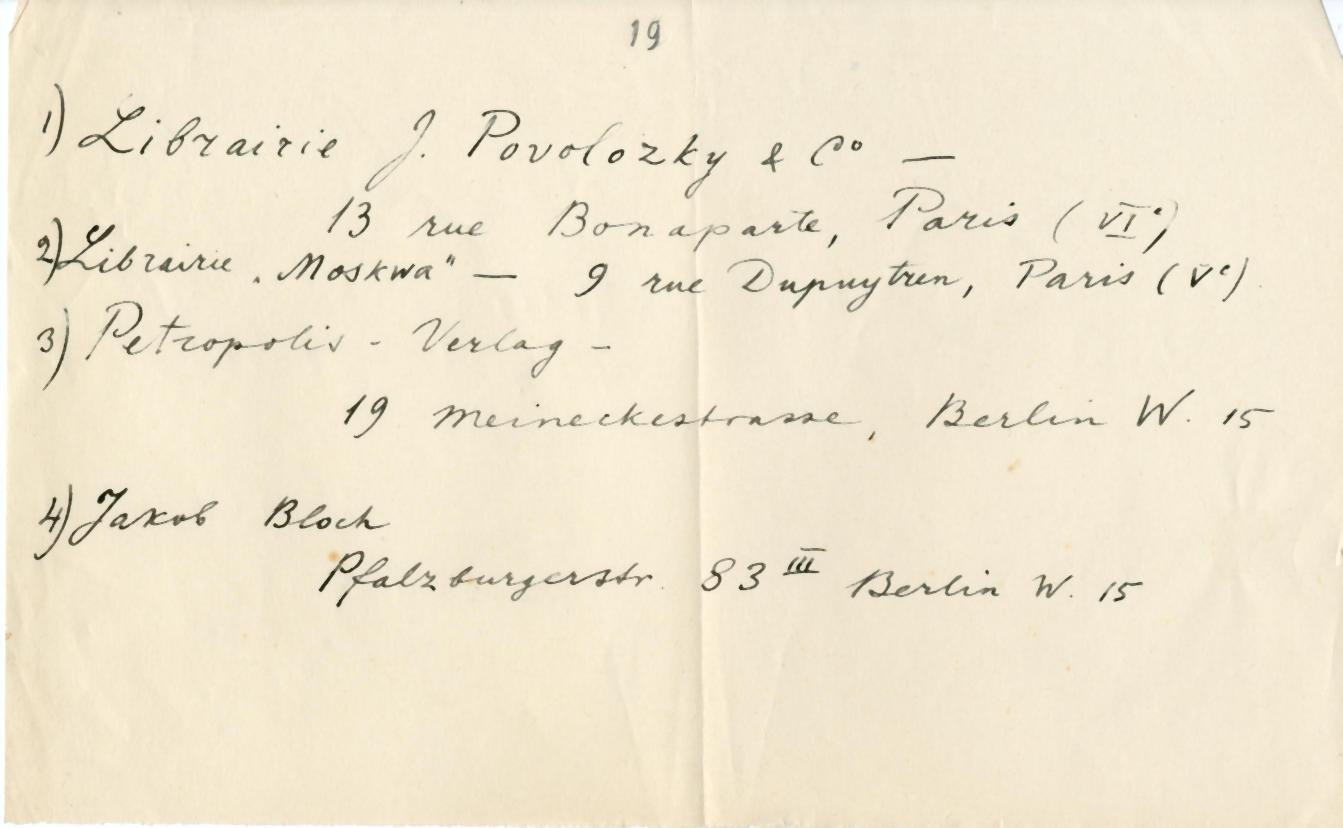 19
1) Librairie J. Povolozky & Cº —
13 rue Bonaparte, Paris (VIᵉ)
2) Librairie „Moskwa“ — 9 rue Dupuytren, Paris (Vᵉ)
3) Petropolis - Verlag -
19 Meineckestrasse, Berlin W. 15
4) Jakob Bloch
Pfalzburgerstr. 83 III Berlin W. 15